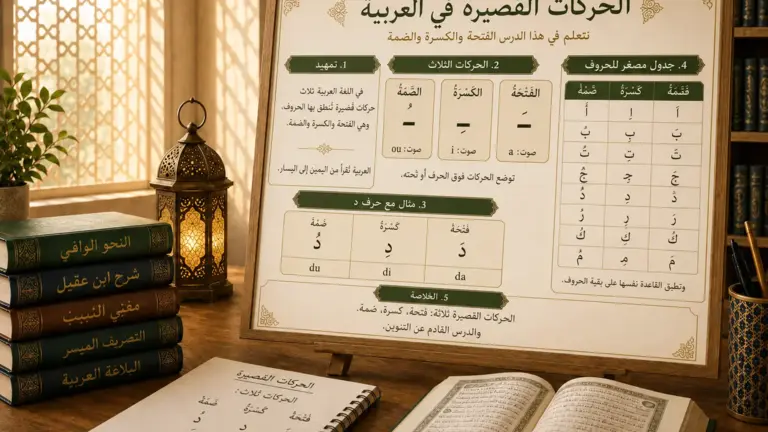 الحركات القصيرة في العربية
نتعلم في هذا الدرس الفتحة والكسرة والضمة
1. تمهيد
في اللغة العربية ثلاث
حركات قصيرة تُنطق بها الحروف،
وهي الفتحة والكسرة والضمة.
العربية تُقرأ من اليمين إلى اليسار.
2. الحركات الثلاث
الفَتْحَةُ الكَسْرَةُ الضَّمَّةُ
صوت: a صوت: i صوت: ou
توضع الحركات فوق الحرف أو تحته.
3. مثال مع حرف د
فَتْحَة كَسْرَة ضَمَّة
دَ دِ دُ
da di du
4. جدول مصغر للحروف
فَتْحَة كَسْرَة ضَمَّة
أَ اِ أُ
بَ بِ بُ
تَ تِ تُ
جَ جِ جُ
دَ دِ دُ
رَ رِ رُ
كَ كِ كُ
مَ مِ مُ
وتطبق القاعدة نفسها على بقية الحروف.
5. الخلاصة
الحركات القصيرة ثلاثة: فتحة، كسرة، ضمة.
والدرس القادم عن التنوين.
النحو الوافي
شرح ابن عقيل
مغني اللبيب
التصريف الميسر
البلاغة العربية
الحركات القصيرة
الحركات ثلاث:
فَتْحَة كَسْرَة ضَمَّة
دَ دِ دُ